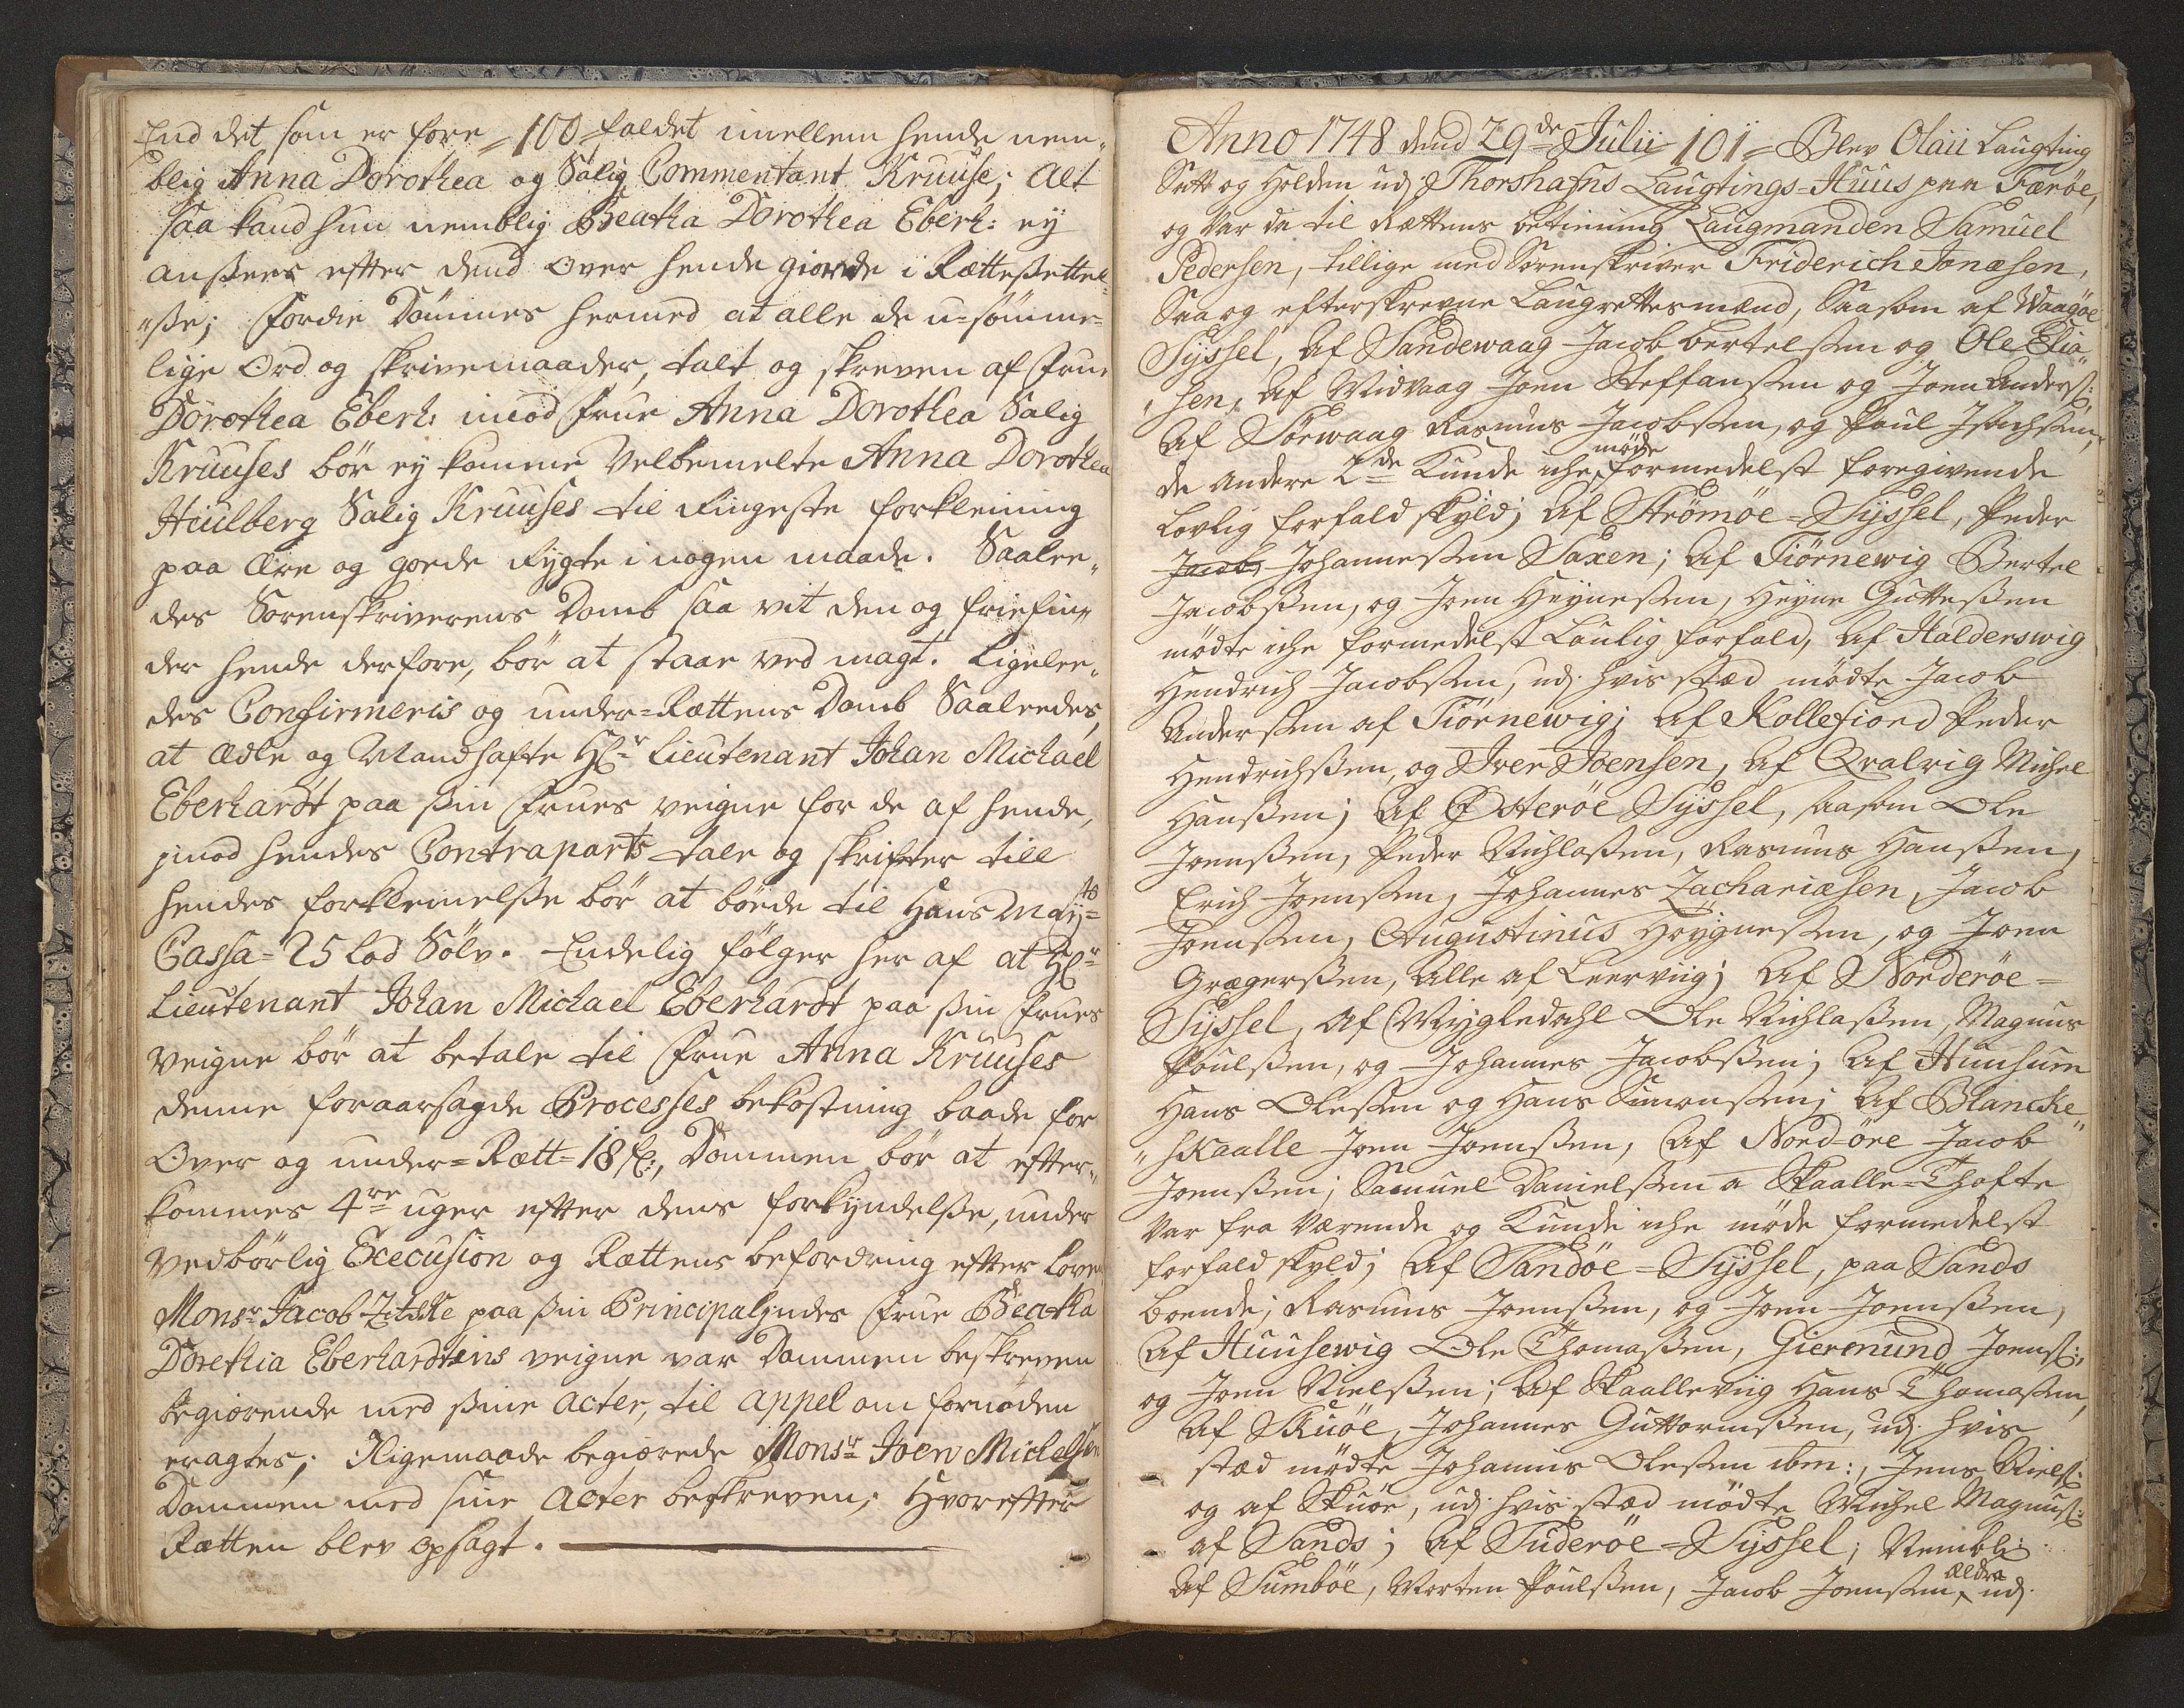 End det som er fore =100= faldet imellem hende nem„
blig Anna Dorothea og Salig Commentant Kruuse; Alt
saa kand hun nemblig Beatha Dorothea Eberh: ey
ansees efter dend over hende giorde i Rættesettel„
„sse; Fordie Dømmes hermed at alle de u-sømme„
lige Ord og skrivemaader, talt og skreven af Frue
Dorothea Eberh: imod Frue Anna Dorothea Salig
Kruuses bør ey komme Velbemelte Anna Dorothea
Hiulberg Salig Kruuses til Ringeste forkleining
paa Ære og goede Rygte i nogen maade. Saalee„
des Sorenskriverens Domb saa vit den og friefin„
der hende derfore, bør at staae ved magt. Ligelee„
des Confirmeris og under=Rættens Domb Saaleedes,
at Ædle og Mandhafte Hr. Lieutenant Johan Michael
Eberhardt paa sin Frues veigne for de af hende,
imod hendes Contraparts tale og skrifter till
hendes forkleinelsse bør at bøede til Hans Mayts
Cassa= 25 Lod Sølv. Endelig følger her af at Hr.
Lieutenant Johan Michael Eberhardt paa sin Frues
veigne bør at betale til Frue Anna Kruuses
denne foraarsagede Processes bekostning baade for
Over og under=Rætt= 18 , Dommen bør at efter„
kommes 4re uger efter dens forkyndelsse, under
vedbørlig Execusion og Rættens befordring efter Loven
Monsr. Jacob Zitske paa sin Principalindes Frue Beatha
Dorethia Eberhardtins veigne var Dommen beskreven
begiørende med sine Acter, til Appel om fornøden
eragtes; Iligemaade begiærede Monsr Joen Michelsen
Dommen med sine Acter beskreven; Hvorefter
Rætten blev opsagt.
Anno 1748 dend 29de Julii =101= Blev Olaii Laugting
Satt og Holden udj Thorshafns Laugtings=Huus paa Færöe,
og var da til Rættens betiening Laugmanden Samuel
Pedersen, tillige med Sorenskriver Friderich Jonæsen,
Saa og efterskrevne Laugrettesmænd, Saasom af Waagöe
Syssel, Af Sandewaag Jacob Bertelssen og Ole Elia„
„sen, Af Midvaag Joen Steffanssen og Joen Anderss:
Af Sörwaag Rasmus Jacobssen, og Poul Isachssen,
de andere 2de Kunde iche møde formedelst foregivende
Lovlig forfald skyld; Af Strömöe=Syssel, Peder
Jacobs Johannessen Saxen; Af Tiörnewig Bertel
Jacobssen, og Joen Heynessen, Heyne Guttessen
mødte iche formedelst Laulig forfald, Af Halderswig
Hendrich Jacobssen, udj hvis stæd mødte Jacob
Anderssen af Tiörnewig; Af Kollefiord Peder
Hendrichssen, og Iver Joensen, Af Qvalvig Michel
Hanssen; Af Österöe Syssel, saasom Ole
Joenssen, Peder Nichlassen, Rasmus Hanssen,
Erich Joenssen, Johannes Zachariæsen, Jacob
Joenssen, Augustinus Heygnessen, og Joen
Grægerssen, Alle af Leerviig; Af Norderöe=
Syssel, Af Mygledahl Ole Nichlassen, Magnus
Poulssen, og Johannes Jacobssen; Af Huusum
Hans Olessen og Hans Simonssen; Af Blancke„
„skaalle Joen Joenssen, Af Nord-öre Jacob
Joenssen; Samuel Danielssen a Skaalle=Thofte
var fra værende og Kunde iche møde formedelst
forfald skyld; Af Sandöe=Syssel, paa Sands
boende; Rasmus Joenssen, og Joen Joenssen,
Af Huusewig Ole Thomassen, Giermund Joenss:,
og Joen Nielssen; Af Skaalleviig Hans Thomassen,
Af Skuöe, Johannes Guttormssen, udj hvis
stæd mødte Johannis Olessen ibm:, Jens Nielss:
og af Skuöe, udj hvis stæd mødte Michel Magnuss:
af Sands; Af Suderöe=Syssel; Nembl:
Af Sumböe, Morten Poulssen, Jacob Joenssen ældre udj